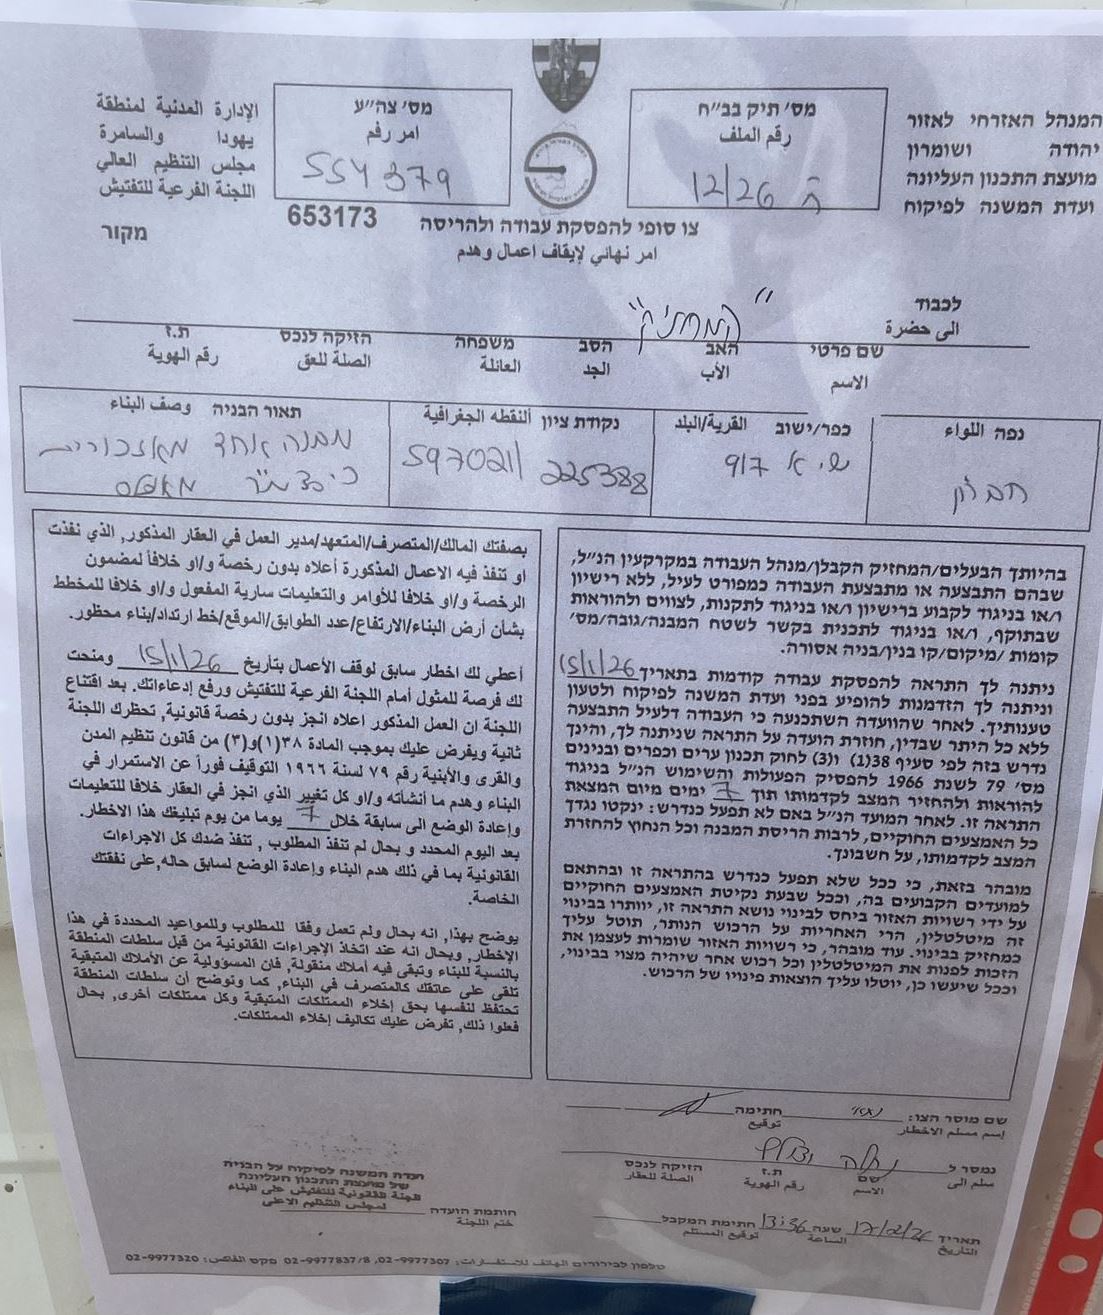 המנהל האזרחי לאזור
יהודה ושומרון
מועצת התכנון העליונה
ועדת המשנה לפיקוח
מס׳ תיק בב״ח
رقم الملف
ה 12/26
מס׳ צה״ע
امر رقم
554379
الإدارة المدنية لمنطقة
يهودا والسامرة
مجلس التنظيم العالي
اللجنة الفرعية للتفتيش
653173
מקור
צו סופי להפסקת עבודה ולהריסה
امر نهائي لإيقاف اعمال وهدم
לכבוד
الى حضرة
"המחזיק"
שם פרטי האב הסב משפחה הזיקה לנכס ת.ז
الاسم الأب الجد العائلة الصلة للعق رقم الهوية
נפה اللواء
חברון
כפר/ישוב القرية/البلد
917
נקודת ציון ألنقطه الجغرافية
225388 597021
תאור הבניה وصف البناء
מבנה אחד מאזכורית
כ
בהיותך הבעלים/המחזיק הקבלן/מנהל העבודה במקרקעין הנ״ל,
שבהם התבצעה או מתבצעת העבודה כמפורט לעיל, ללא רישיון
ו/או בניגוד לקבוע ברישיון ו/או בניגוד לתקנות, לצווים ולהוראות
שבתוקף, ו/או בניגוד לתכנית בקשר לשטח המבנה/גובה/מס׳
קומות /מיקום/קו בנין/בניה אסורה.
ניתנה לך התראה להפסקת עבודה קודמות בתאריך 15/1/26
וניתנה לך הזדמנות להופיע בפני ועדת המשנה לפיקוח ולטעון
טענותיך. לאחר שהוועדה השתכנעה כי העבודה דלעיל התבצעה
ללא כל היתר שבדין, חוזרת הועדה על התראה שניתנה לך, והינך
נדרש בזה לפי סעיף 38(1) ו(3) לחוק תכנון ערים וכפרים ובנינים
מס׳ 79 לשנת 1966 להפסיק הפעולות והשימוש הנ״ל בניגוד
להוראות ולהחזיר המצב לקדמותו תוך 7 ימים מיום המצאת
התראה זו. לאחר המועד הנ״ל באם לא תפעל כנדרש: ינקטו נגדך
כל האמצעים החוקיים, לרבות הריסת המבנה וכל הנחוץ להחזרת
המצב לקדמותו, על חשבונך.
מובהר בזאת, כי ככל שלא תפעל כנדרש בהתראה זו ובהתאם
למועדים הקבועים בה, וככל שבעת נקיטת האמצעים החוקיים
על ידי רשויות האזור ביחס לבינוי נושא התראה זו, יוותרו בבינוי
זה מיטלטלין, הרי האחריות על הרכוש הנותר, תוטל עליך
כמחזיק בבינוי. עוד מובהר, כי רשויות האזור שומרות לעצמן את
הזכות לפנות את המיטלטלין וכל רכוש אחר שיהיה מצוי בבינוי,
וככל שיעשו כן, יוטלו עליך הוצאות פינויו של הרכוש.
بصفتك المالك/المتصرف/المتعهد/مدير العمل في العقار المذكور, الذي نفذت
او تنفذ فيه الاعمال المذكورة أعلاه بدون رخصة و/او خلافاً لمضمون
الرخصة و/او خلافا للأوامر والتعليمات سارية المفعول و/او خلافا للمخطط
بشأن أرض البناء/الارتفاع/عدد الطوابق/الموقع/خط ارتداد/بناء محظور.
أعطي لك اخطار سابق لوقف الأعمال بتاريخ 15/1/26 ومنحت
لك فرصة للمثول أمام اللجنة الفرعية للتفتيش ورفع إدعاءاتك. بعد اقتناع
اللجنة ان العمل المذكور اعلاه انجز بدون رخصة قانونية, تحظرك اللجنة
ثانية ويفرض عليك بموجب المادة ٣٨(١)و(٣) من قانون تنظيم المدن
والقرى والأبنية رقم ٧٩ لسنة ١٩٦٦ التوقيف فوراً عن الاستمرار في
البناء وهدم ما أنشأته و/او كل تغيير الذي انجز في العقار خلافا للتعليمات
وإعادة الوضع الى سابقة خلال 7 يوما من يوم تبليغك هذا الاخطار.
بعد اليوم المحدد و بحال لم تنفذ المطلوب , تتنفذ ضدك كل الاجراءات
القانونية بما في ذلك هدم البناء وإعادة الوضع لسابق حاله,على نفقتك
الخاصة.
يوضح بهذا, انه بحال ولم تعمل وفقا للمطلوب وللمواعيد المحددة في هذا
الإخطار, وبحال انه عند اتخاذ الإجراءات القانونية من قبل سلطات المنطقة
بالنسبة للبناء وتبقى فيه أملاك منقولة, فان المسؤولية عن الأملاك المتبقية
تلقى على عاتقك كالمتصرف في البناء, كما ونوضح أن سلطات المنطقة
تحتفظ لنفسها بحق إخلاء الممتلكات المتبقية وكل ممتلكات أخرى, بحال
فعلوا ذلك, تفرض عليك تكاليف إخلاء الممتلكات.
שם מוסר הצו: חתימה
إسم مسلم الاخطار توقيع
נמסר ל
سلم الى
שם ת.ז הזיקה לנכס
الاسم رقم الهوية الصلة للعقار
תאריך 17/02/26 שעה 13:36 חתימת המקבל
التاريخ الساعة توقيع المستلم
ועדת המשנה לפיקוח על הבניה
של מועצת התכנון העליונה
لجنة القانونية للتفتيش على البناء
لمجلس التنظيم الاعلى
חותמת הועדה
ختم اللجنة
טלפון לבירורים الهاتف للاستفسارات: 02-9977307, 02-9977837/8 פקס الفاكس: 02-9977320